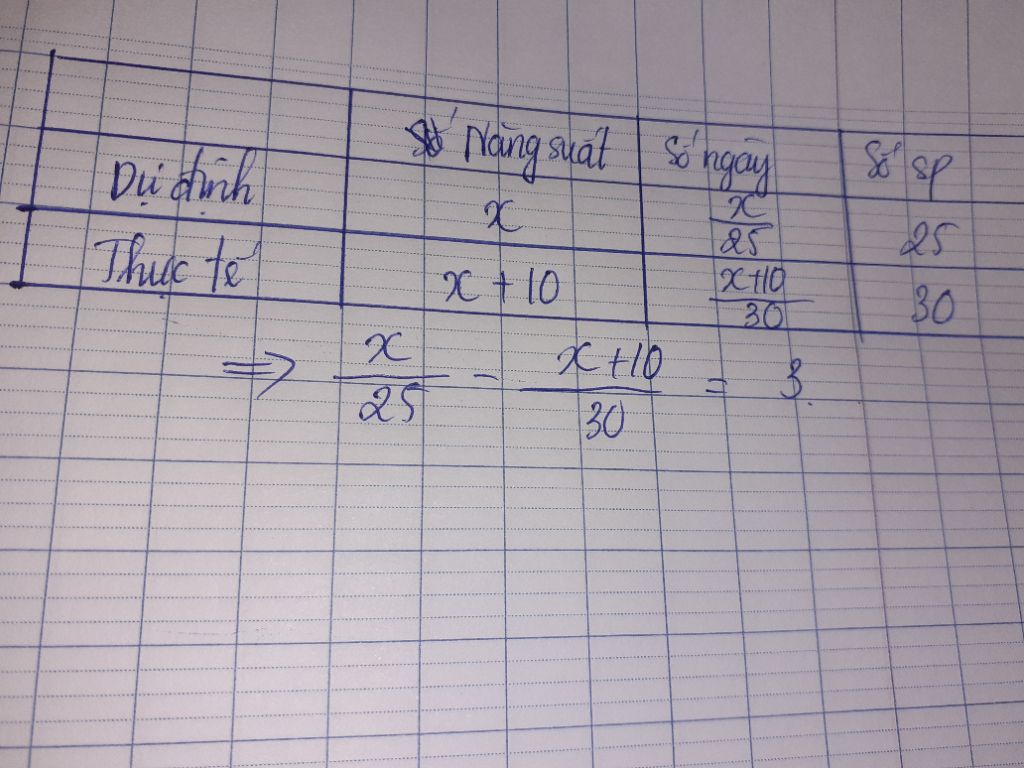 Năng suất Số ngày Số sp
Dự định x x/25 25
Thực tế x + 10 x+10/30 30
=> x/25 - x+10/30 = 3.